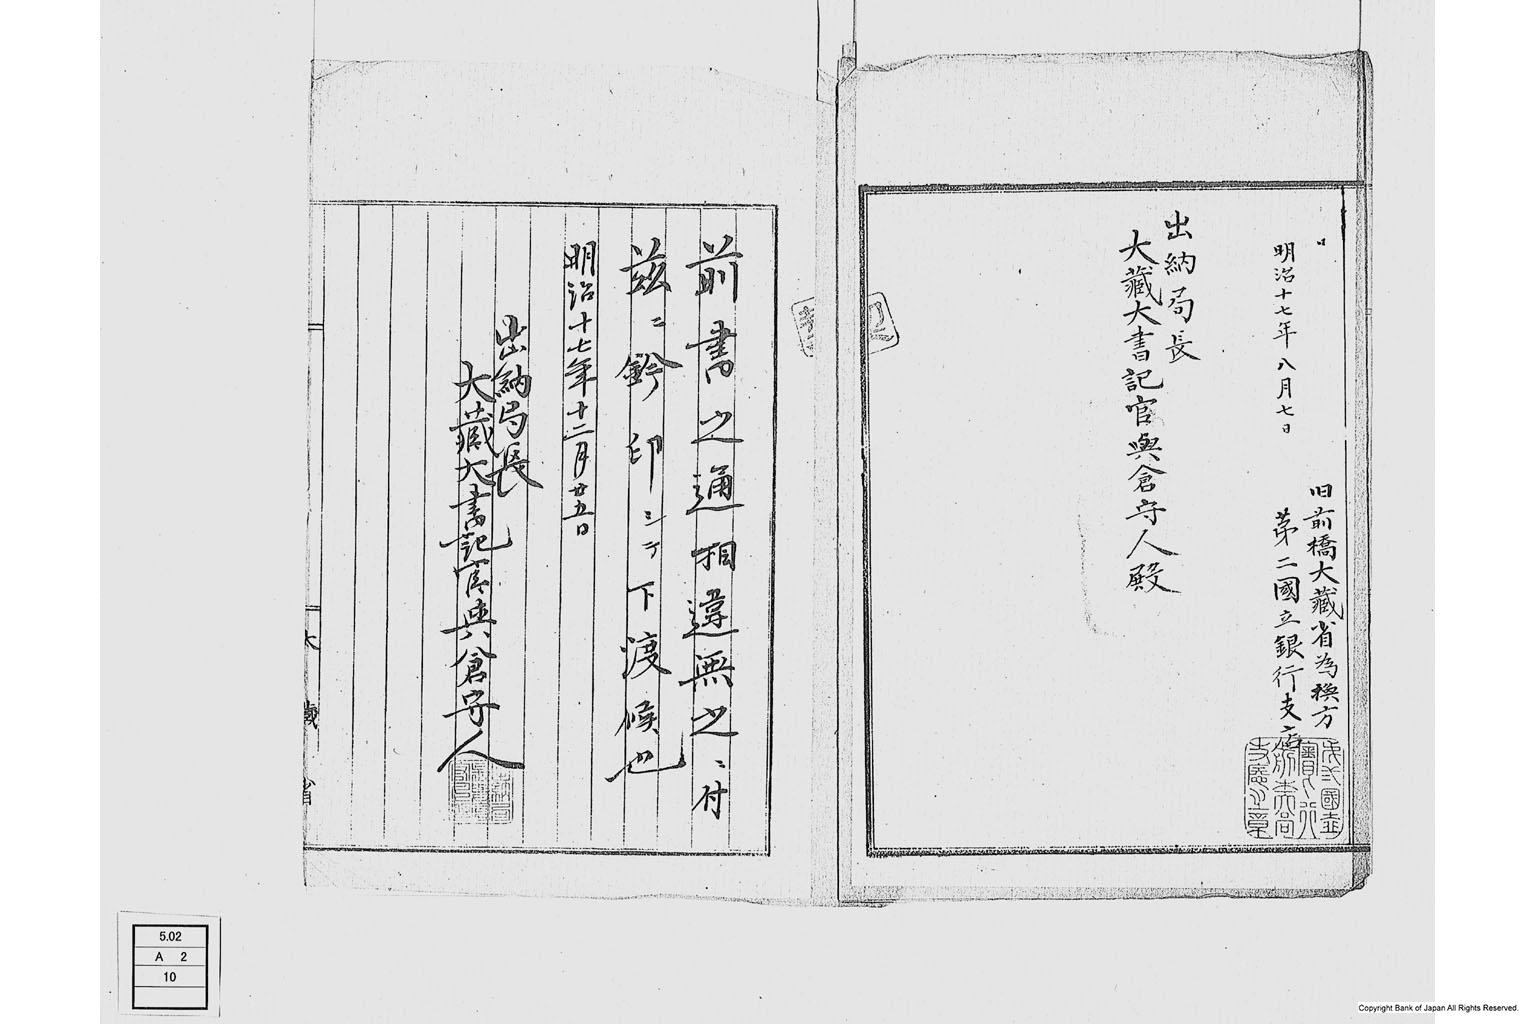 明治十七年八月七日
旧前橋大藏省為換方
第二國立銀行支店
出納局長
大藏大書記官與倉守人殿
前書之通相違無之ニ付
茲ニ鈐印シテ下渡候也
明治十七年十二月廿五日
出納局長
大藏大書記官與倉守人
大藏省
5.02
A 2
10
Copyright Bank of Japan All Rights Reserved.